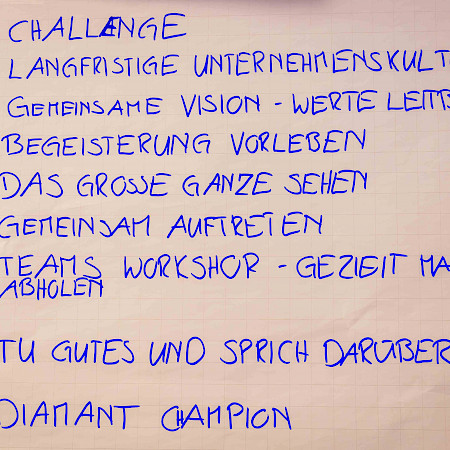 CHALLENGE
LANGFRISTIGE UNTERNEHMENSKULT
GEMEINSAME VISION - WERTE LEITB
BEGEISTERUNG VORLEBEN
DAS GROSSE GANZE SEHEN
GEMEINSAM AUFTRETEN
TEAMS WORKSHOP - GEZIELT MA
ABHOLEN
TU GUTES UND SPRICH DARÜBER
DIAMANT CHAMPION